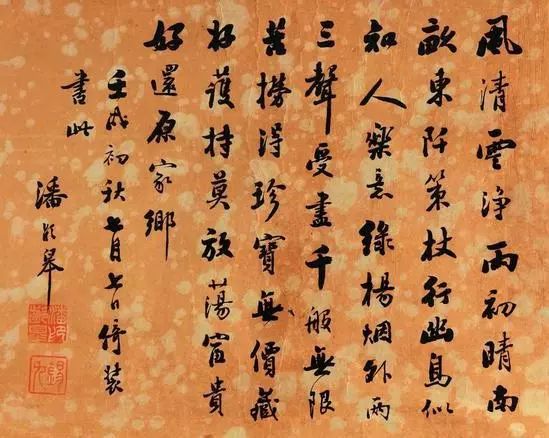 風清雲淨雨初晴南
畝東阡策杖行幽鳥似
知人樂意綠楊烟外两
三聲受盡千般無限
苦撈得珍寶無價藏
好護持莫放蕩富貴
好還原家鄉
壬戌初秋七月七日倚裝
書此
潘齡皋
潘印齡皋
錫九